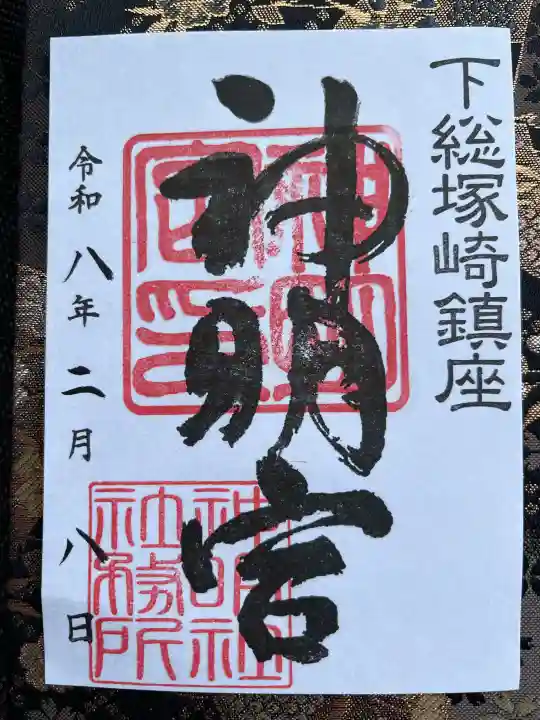 下総塚崎鎮座
神明宮
令和八年二月八日
神明宮印
神明社
社務所